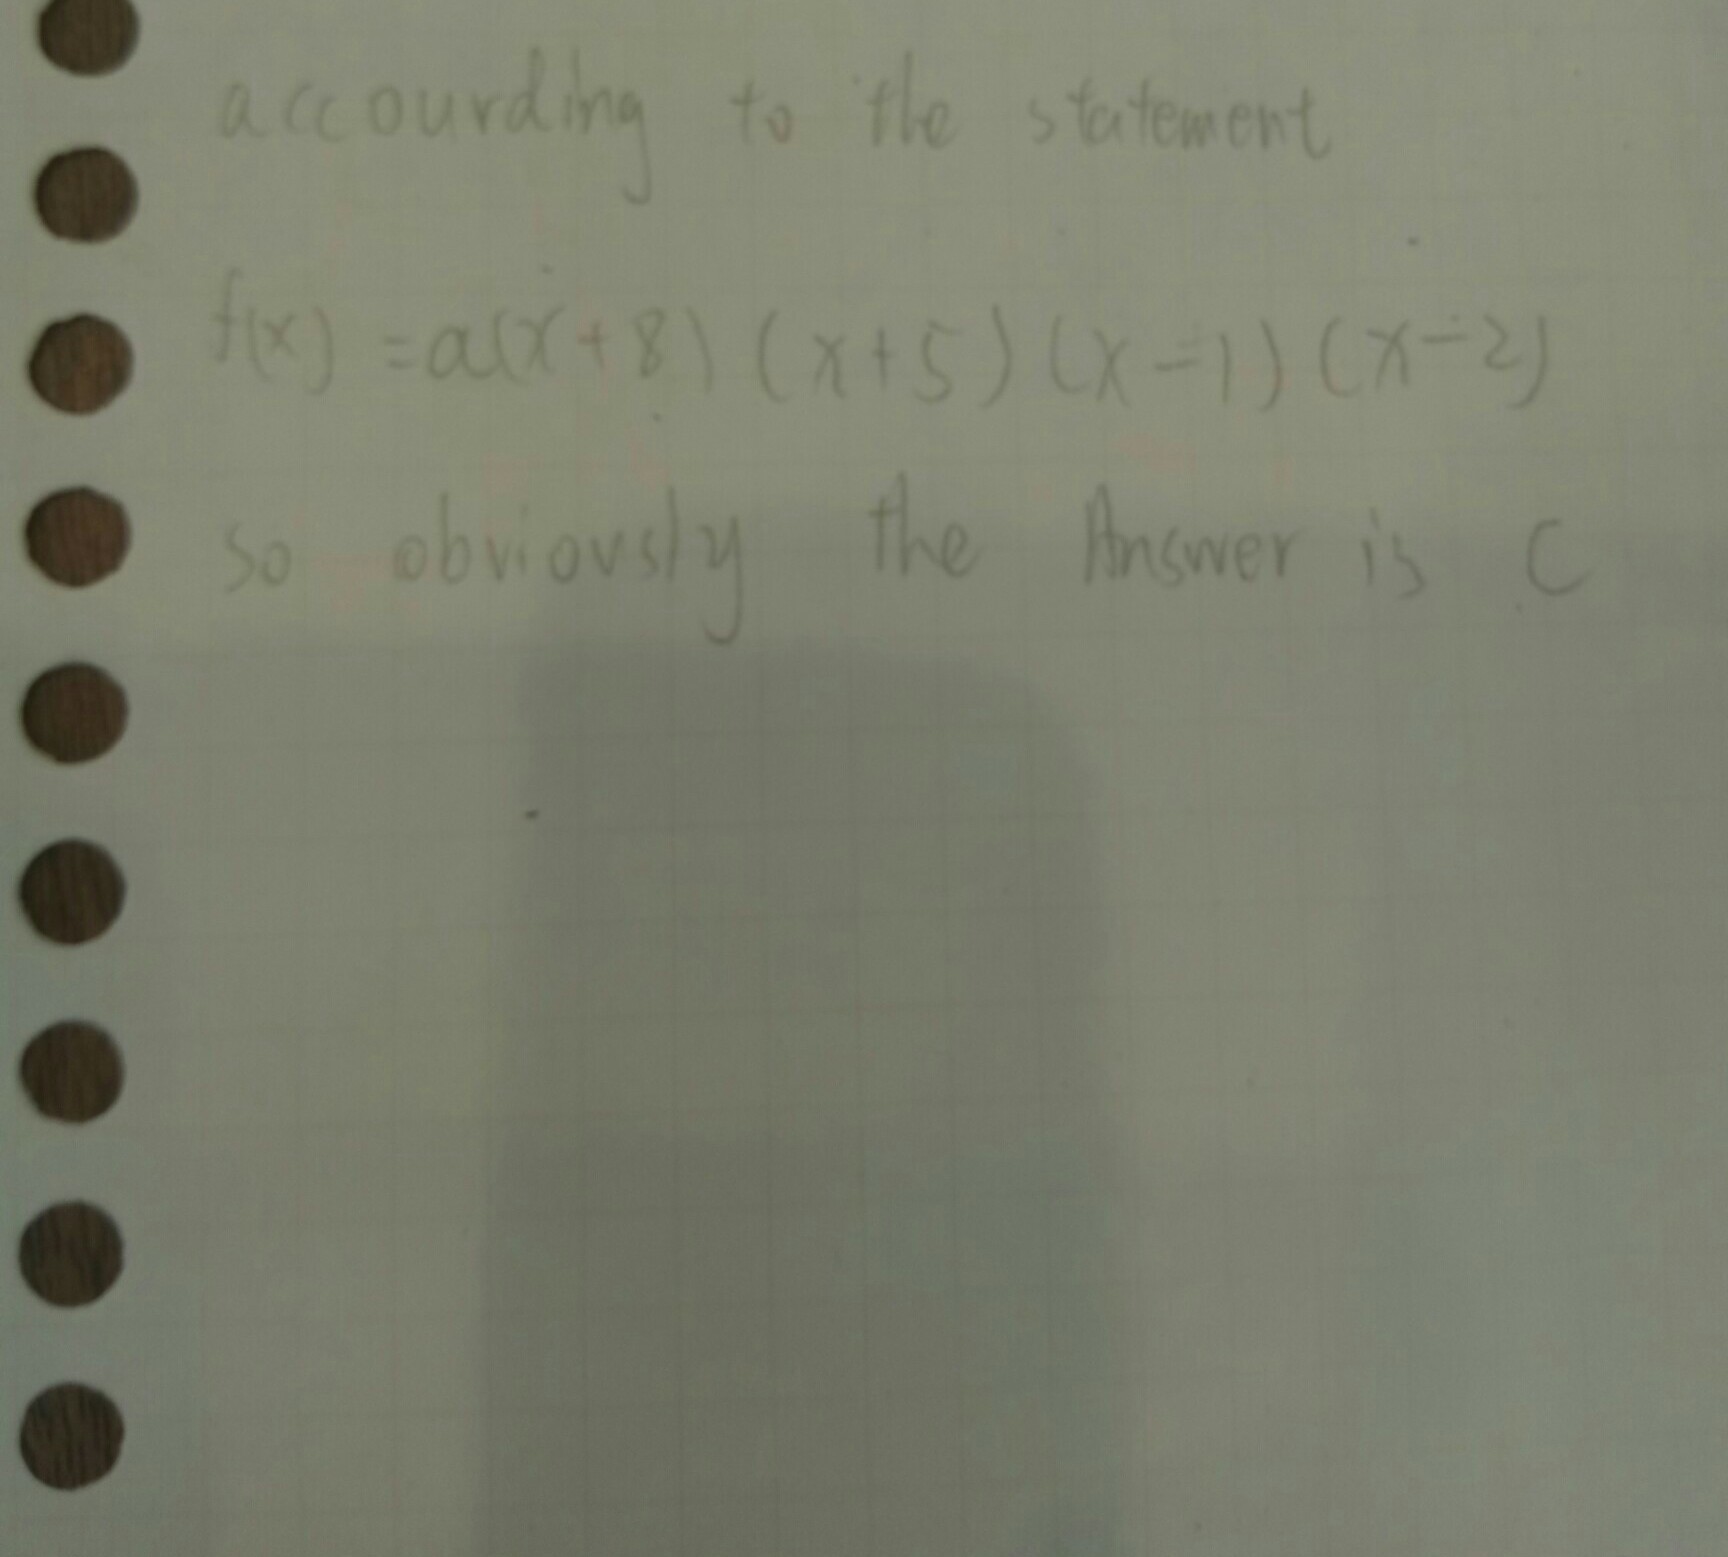 accourding to the statement
f(x) = a(x+8) (x+5) (x-1) (x-2)
so obviously the Answer is C